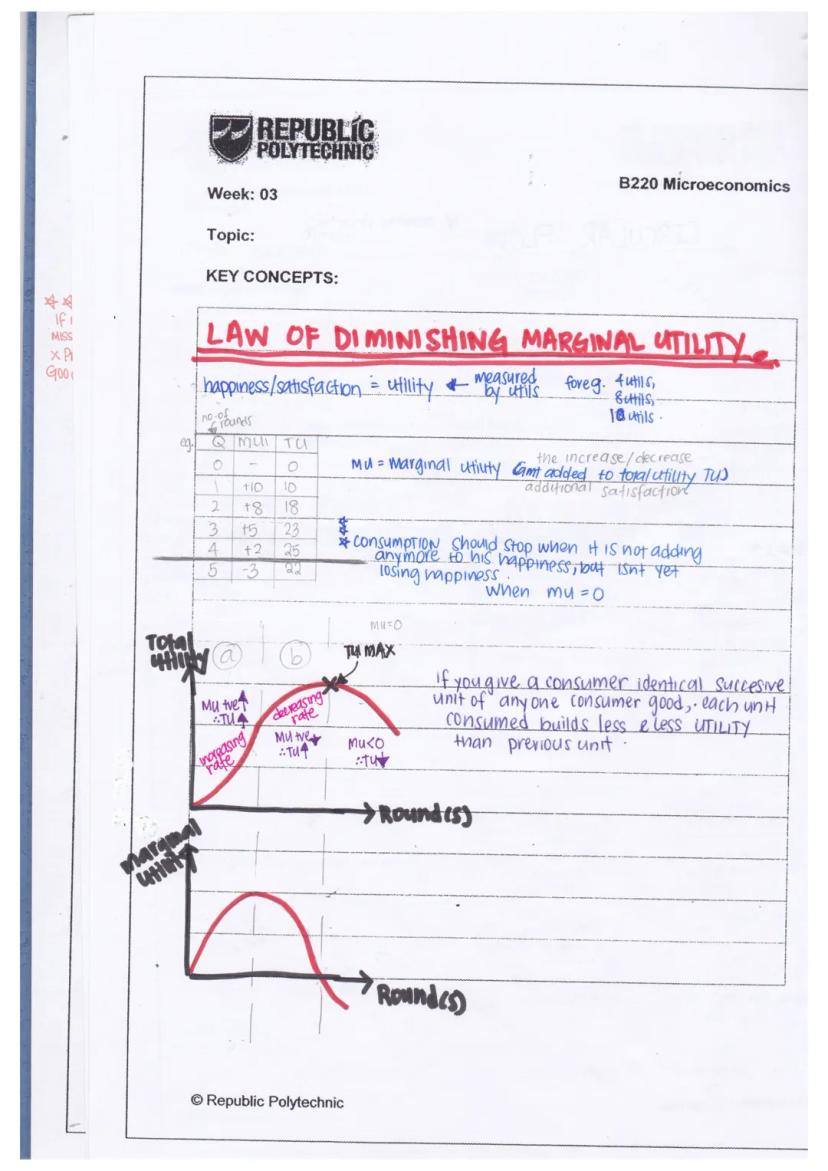 REPUBLIC
POLYTECHNIC
B220 Microeconomics
Week: 03
Topic:
KEY CONCEPTS:
IF
MISS
LAW OF DIMINISHING MARGINAL UTILITY
happiness/satisfaction = utility ← measured by utils foreg. 4 utils,
8 utils,
10 utils.
no. of rounds
eg. Q MU TU
0 - 0
1 +10 10
2 +8 18
3 +5 23
4 +2 25
5 -3 22
MU = Marginal utility (amt added to total utility TU)
the increase/decrease
additional satisfaction
* consumption should stop when it is not adding
anymore to his happiness, but isnt yet
losing happiness.
when mu = 0
mu=0
Total utility
a b
TU MAX
MU +ve↑
∴TU↑
increasing rate
decreasing rate
MU +ve↓
∴TU↑
MU<0
∴TU↓
Round(s)
If you give a consumer identical succesive
unit of anyone consumer good, each unit
consumed builds less & less UTILITY
than previous unit.
marginal utility
Round(s)
© Republic Polytechnic